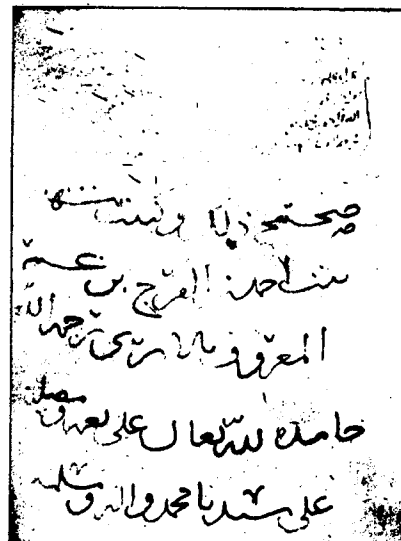 صحيح ذلك وكتبت شهدة
بنت احمد بن الفرج بن عمر
المعروف بالابري رحمه الله
حامدة لله تعالى على نعمه ومصلية
على سيدنا محمد واله ومسلمة